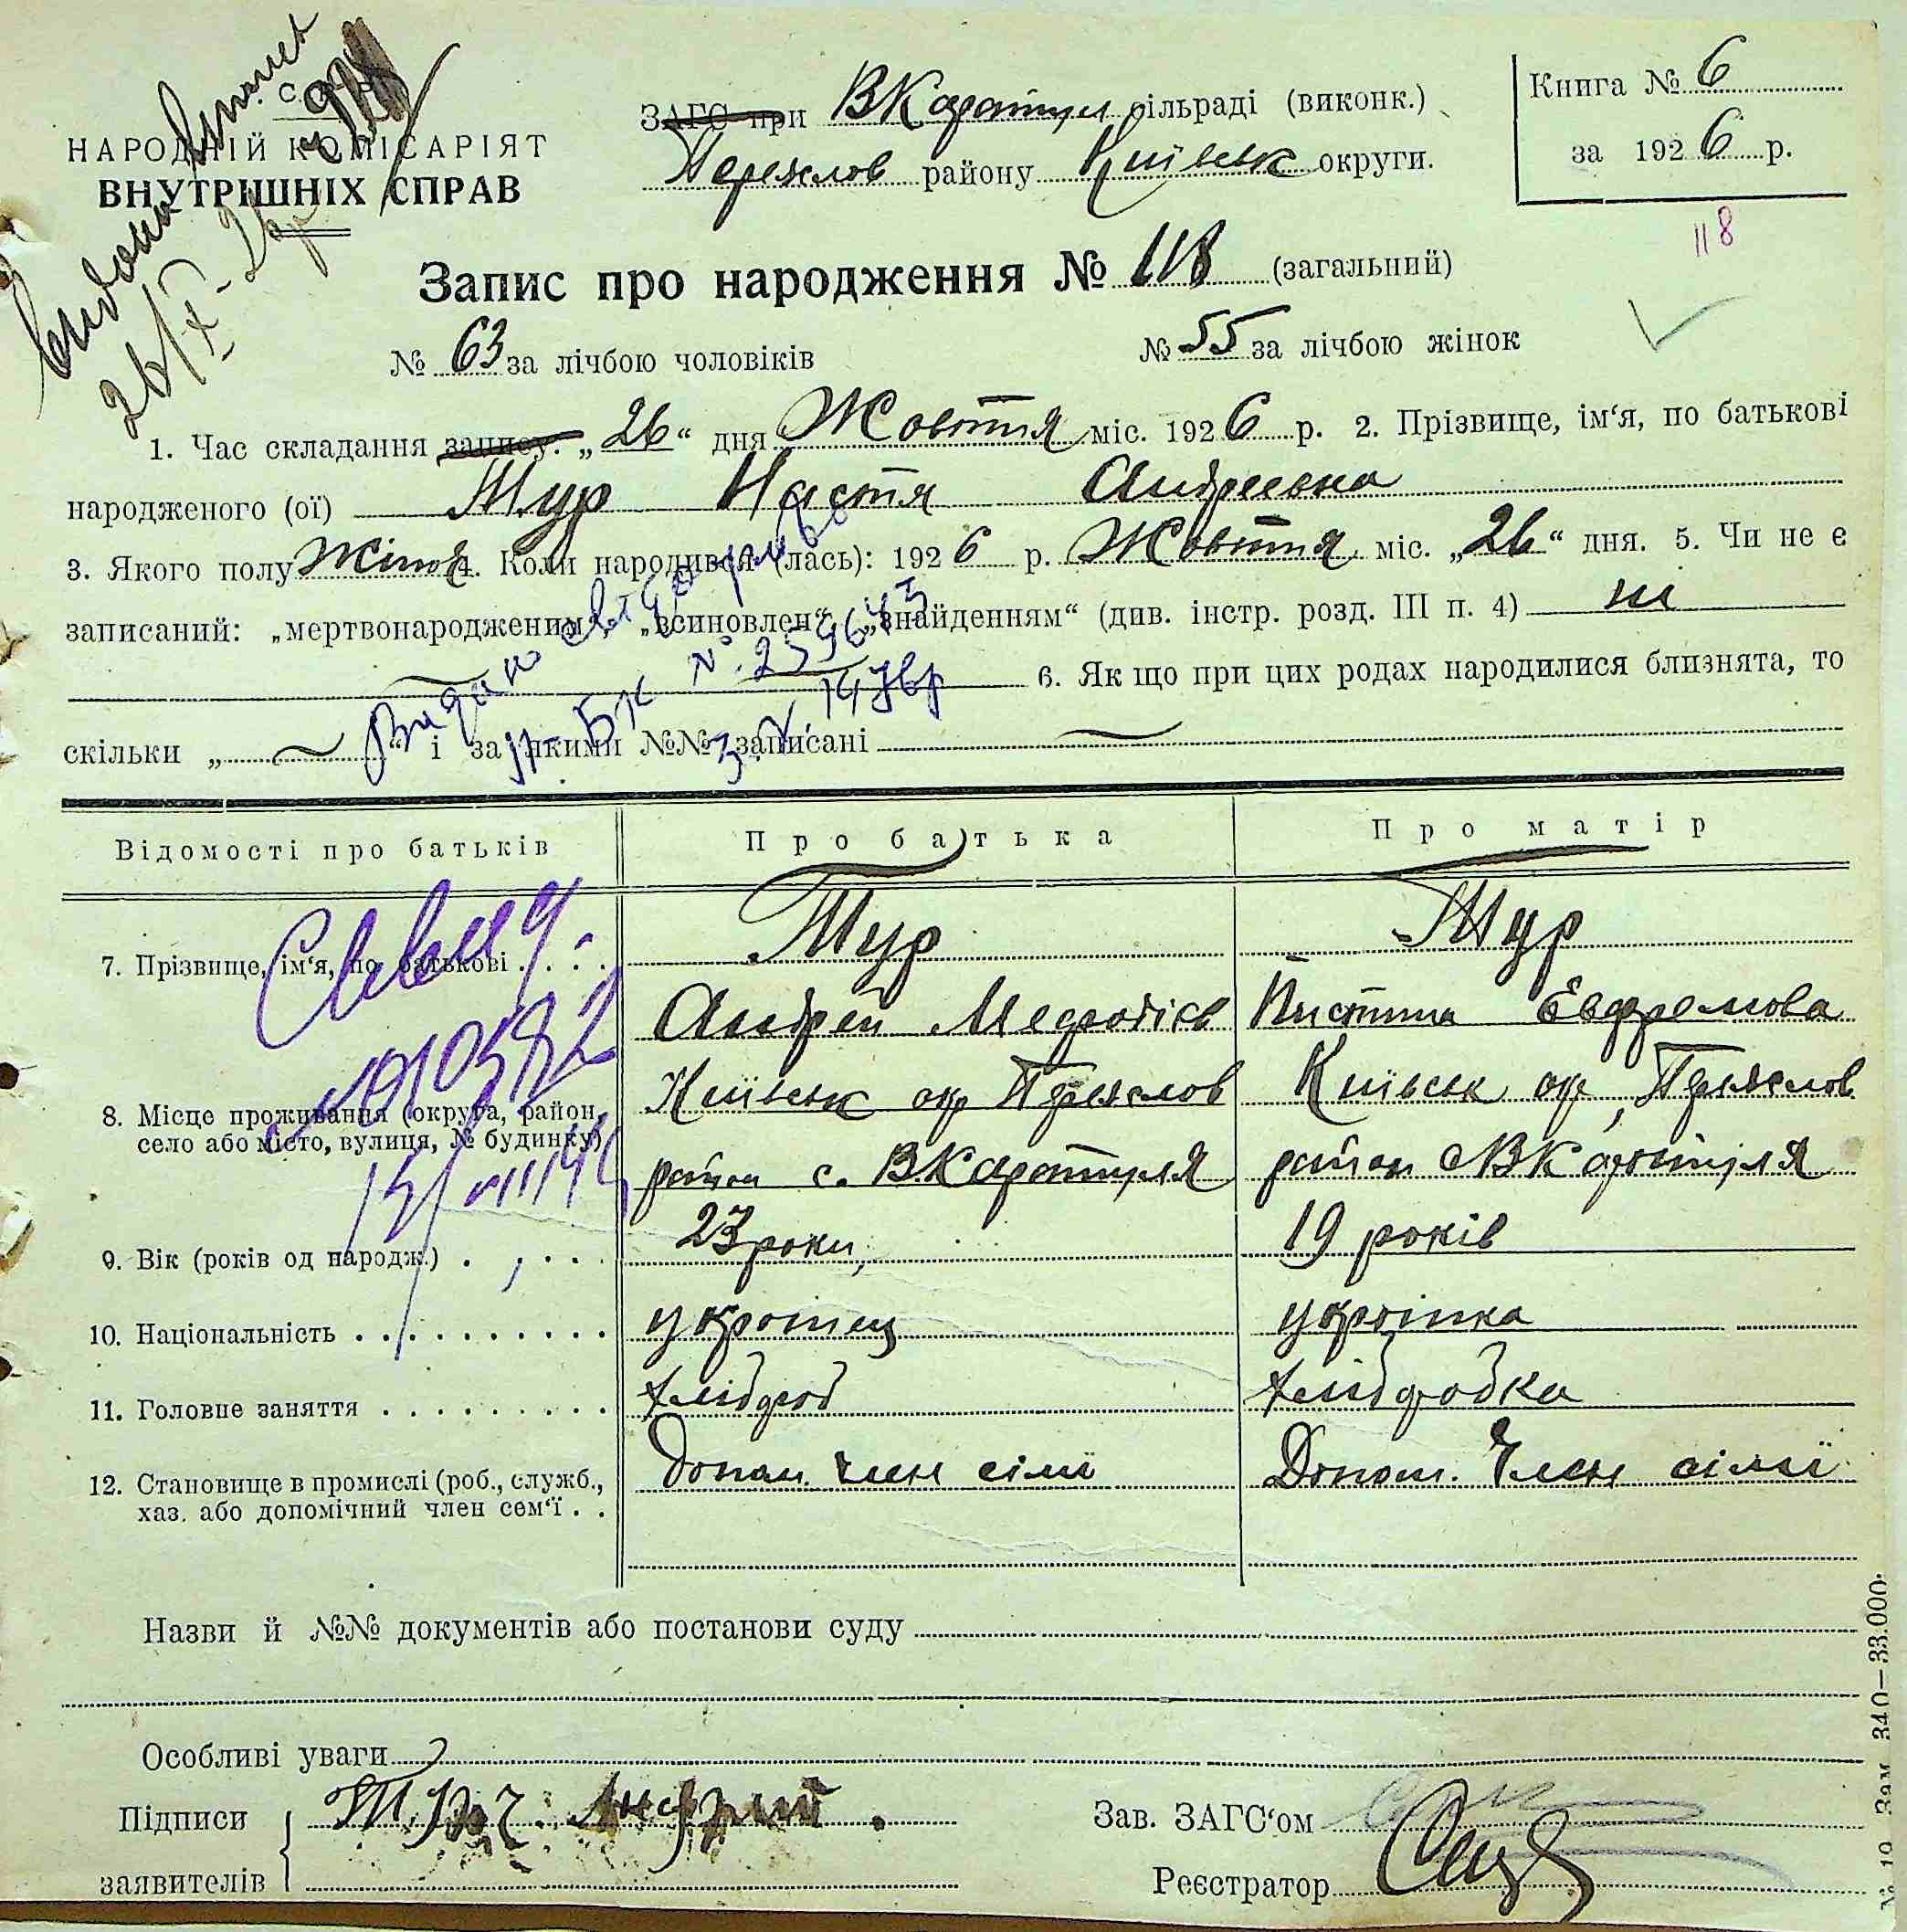 НАРОДНІЙ КОМІСАРІЯТ
ВНУТРІШНІХ СПРАВ
26/X-26р
ЗАГС при ВКаратул сільраді (виконк.)
Переяслов району Київськ округи.
Книга № 6
за 1926 р.
118
Запис про народження № 118 (загальний)
№ 63 за лічбою чоловіків № 55 за лічбою жінок
1. Час складання запису. „26“ дня Жовтня міс. 1926 р. 2. Прізвище, ім‘я, по батькові
народженого (ої) Тур Настя Андреевна
3. Якого полу Жіноч 4. Коли народився (лась): 1926 р. Жовтня міс. „26“ дня. 5. Чи не є
записаний: „мертвонародженим“, „всиновлен“, „знайденням“ (див. інстр. розд. III п. 4) ні
6. Як що при цих родах народилися близнята, то
скільки „ “ і за якими №№ записані
Видано
II-БК №
Відомості про батьків Про батька Про матір
7. Прізвище, ім‘я, по батькові . . . . Тур Тур
Андрей Мефодієв Євфремова
8. Місце проживання (округа, район, село або місто, вулиця, № будинку) Київськ окр Переяслов Київськ окр, Переяслов
район с. ВКаратуля район с ВКаратуля
9. Вік (років од народж.) . . . . 23 роки 19 років
10. Національність . . . . . . . . . . українець українка
11. Головне заняття . . . . . . . . . хлібороб хліборобка
12. Становище в промислі (роб., служб., хаз. або допомічний член сем‘ї . . Допом. член сімї Допом. Член сімї
Назви й №№ документів або постанови суду
Особливі уваги
Підписи Тур Андрий.
заявителів
Зав. ЗАГС‘ом
Реєстратор
№ 10 Зам. 340—33.000.